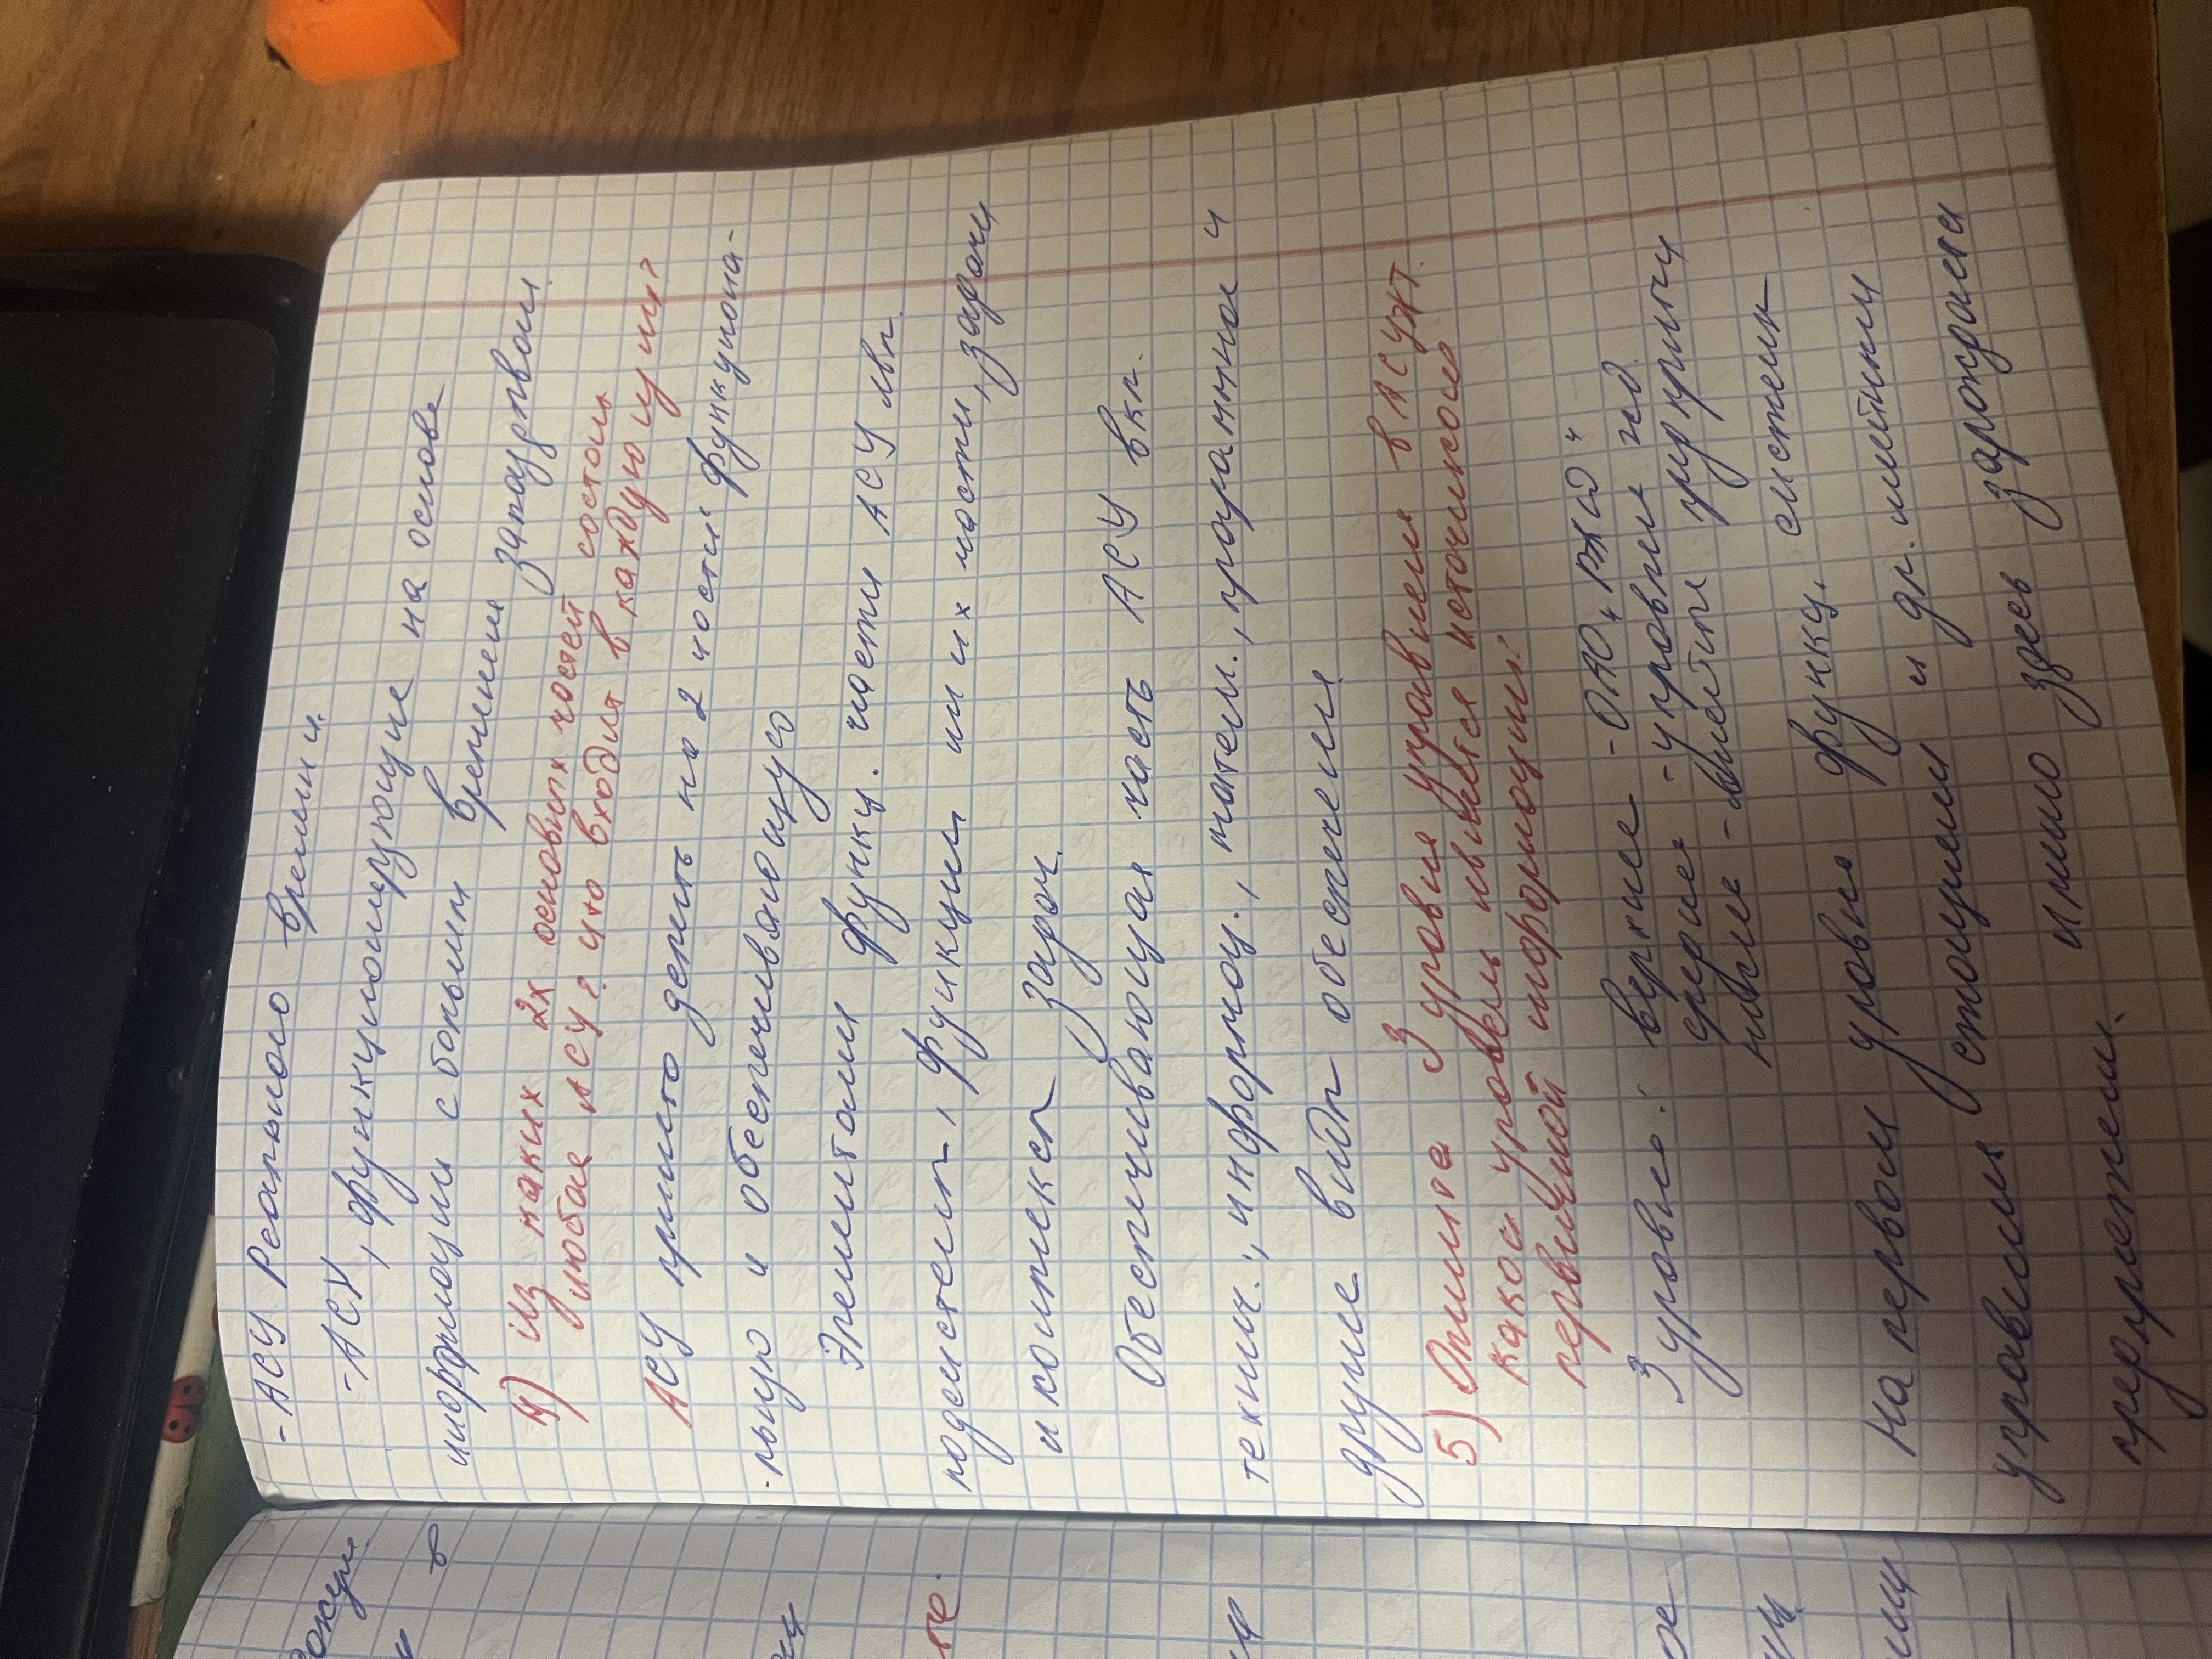 - АСУ Реального времени.
- АСУ, функционирующие на основе
информации с большим временем запаздывания.
4) Из каких 2х основных частей состоит
любая АСУ? что входит в каждую из них?
АСУ принято делить на 2 части функциона-
-льную и обеспечивающую
Элементами функц. части АСУ явл.
подсистемы, функции или их части, задачи
и комплексы задач.
Обеспечивающая часть АСУ вкл.
технич., информац., матем., программное и
другие виды обеспечения
5) Опишите 3 уровня управления в АСУЖТ.
какой уровень является источником
первичной информации?
3 уровня: верхнее - ОАО "РЖД"
среднее - уровни жд
нижнее - линейные предприятия
На первом уровне функц. системы
управления станциями и др. линейными
предприятиями. именно здесь зарождается